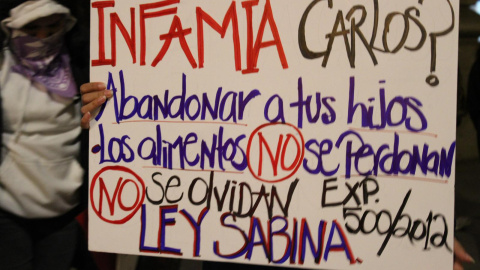 INFAMIA CARLOS?
Abandonar a tus hijos
.Los alimentos NO se perdonan
NO se olvidan EXP.
500/2012
LEY SABINA.